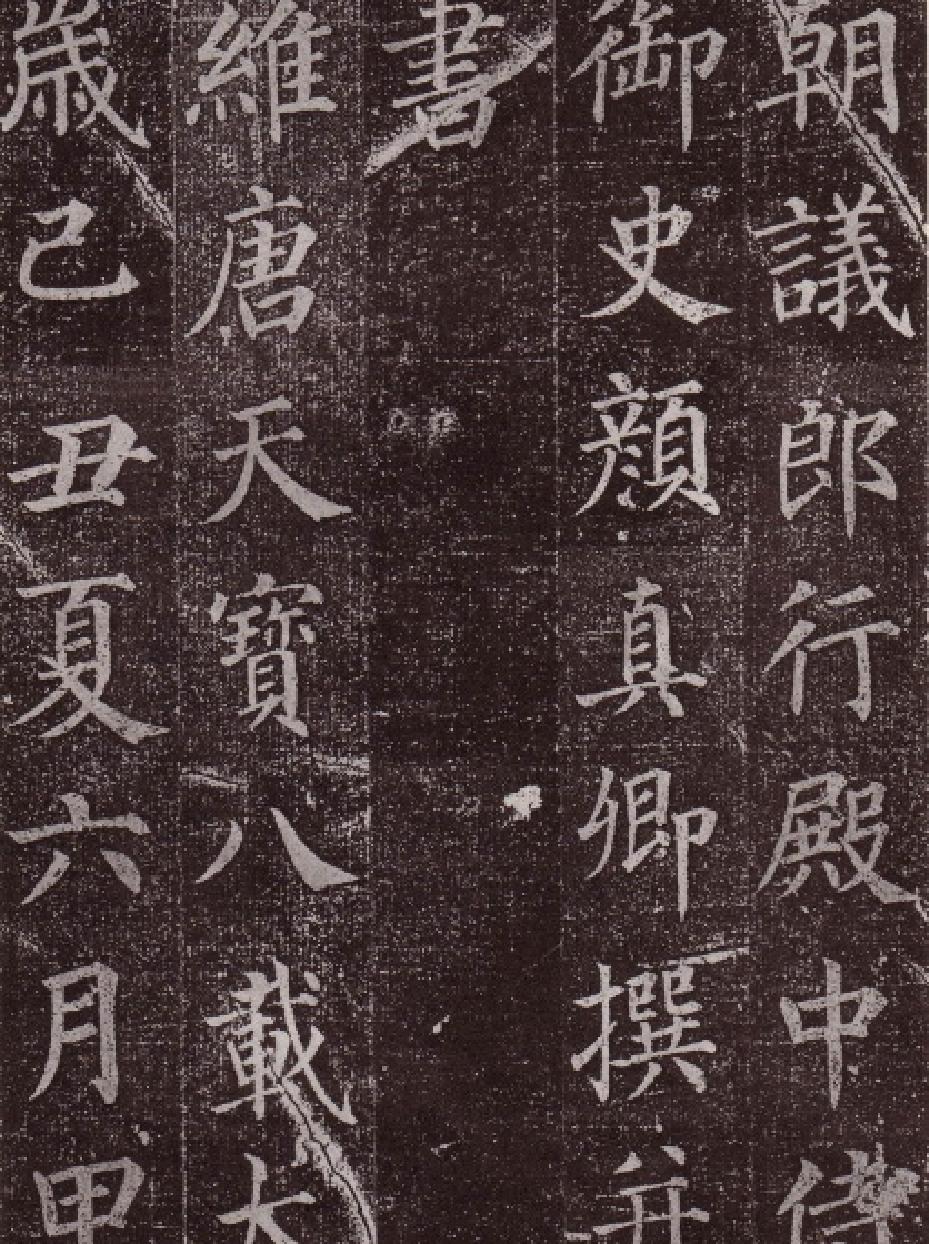 朝議郎行殿中侍
御史顏真卿撰并
書
維唐天寶八載大
歲己丑夏六月甲